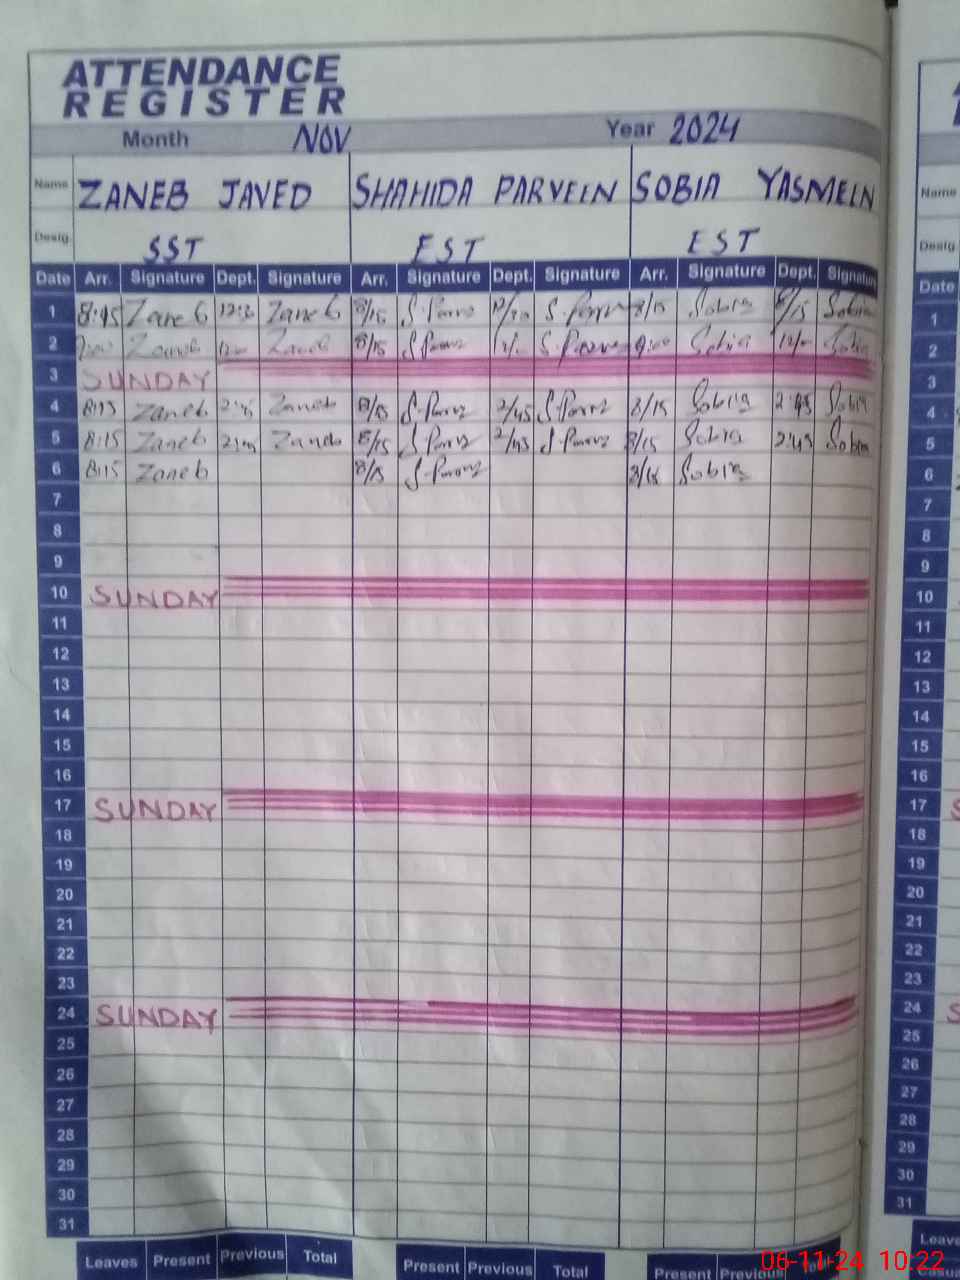 ATTENDANCE
REGISTER
Month NOV Year 2024
Name ZANEB JAVED SHAHIDA PARVEIN SOBIA YASMEEN
Desig. SST EST EST
Date Arr. Signature Dept. Signature Arr. Signature Dept. Signature Arr. Signature Dept. Signature
1 8:45 Zaneb Zaneb 8/15 Sobia Sobia
2 Zaneb Zaneb 8/15 9:00 Sobia Sobia
3 SUNDAY
4 8:15 Zaneb 2:45 Zaneb 8/15 2/45 8/15 Sobia 2:45 Sobia
5 8:15 Zaneb 2:45 Zaneb 8/15 2/45 8/15 Sobia 2:45 Sobia
6 8:15 Zaneb 8/15 8/15 Sobia
7
8
9
10 SUNDAY
11
12
13
14
15
16
17 SUNDAY
18
19
20
21
22
23
24 SUNDAY
25
26
27
28
29
30
31
Leaves Present Previous Total Present Previous Total Present Previous Total
Name
Desig
Date
1
2
3
4
5
6
7
8
9
10
11
12
13
14
15
16
17
18
19
20
21
22
23
24
25
26
27
28
29
30
31
Leave
06-11-24 10:22